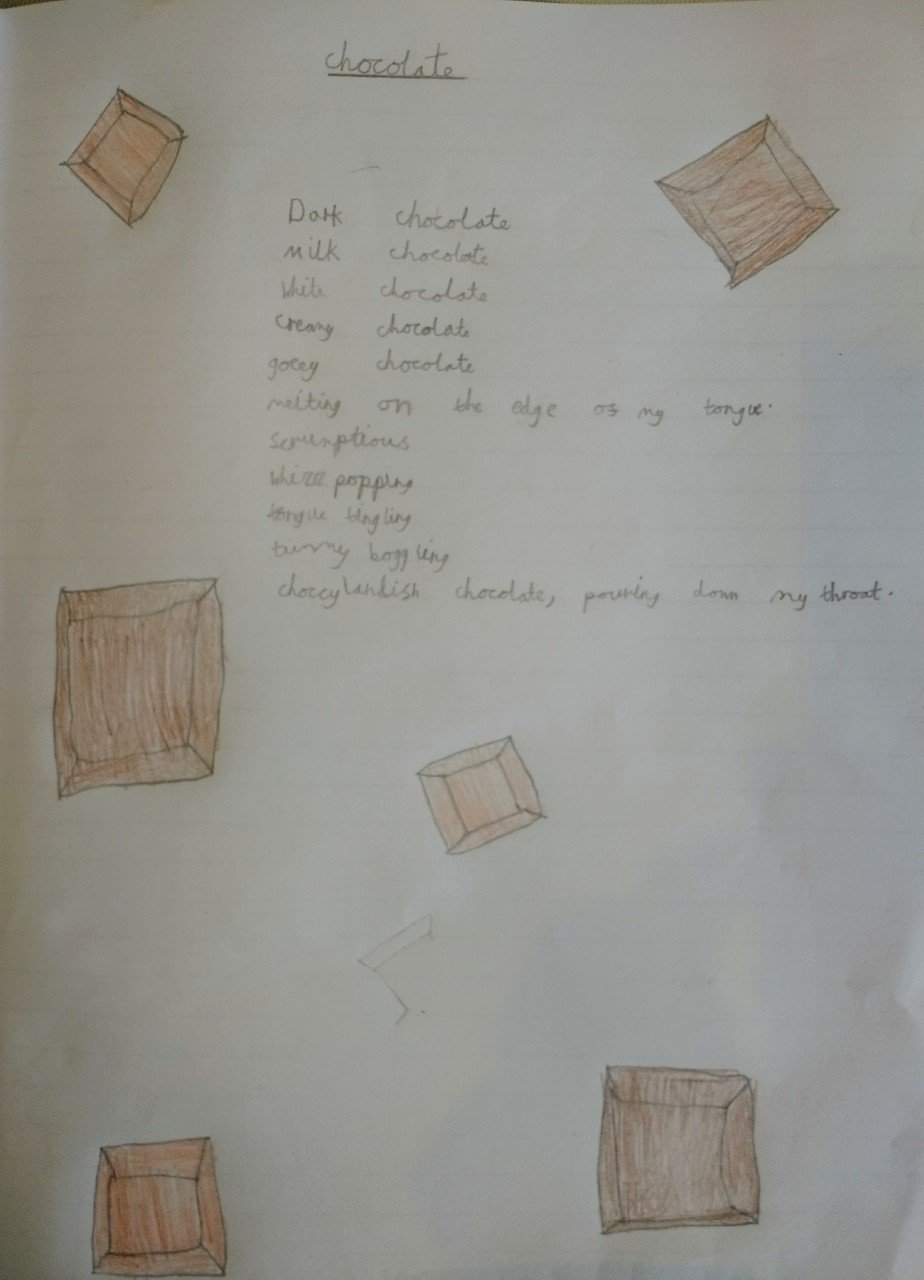 chocolate
Dark chocolate
milk chocolate
white chocolate
creamy chocolate
gooey chocolate
melting on the edge of my tongue.
scrumptious
whizz popping
tongue tingling
tummy boggling
choccylandish chocolate, pouring down my throat.